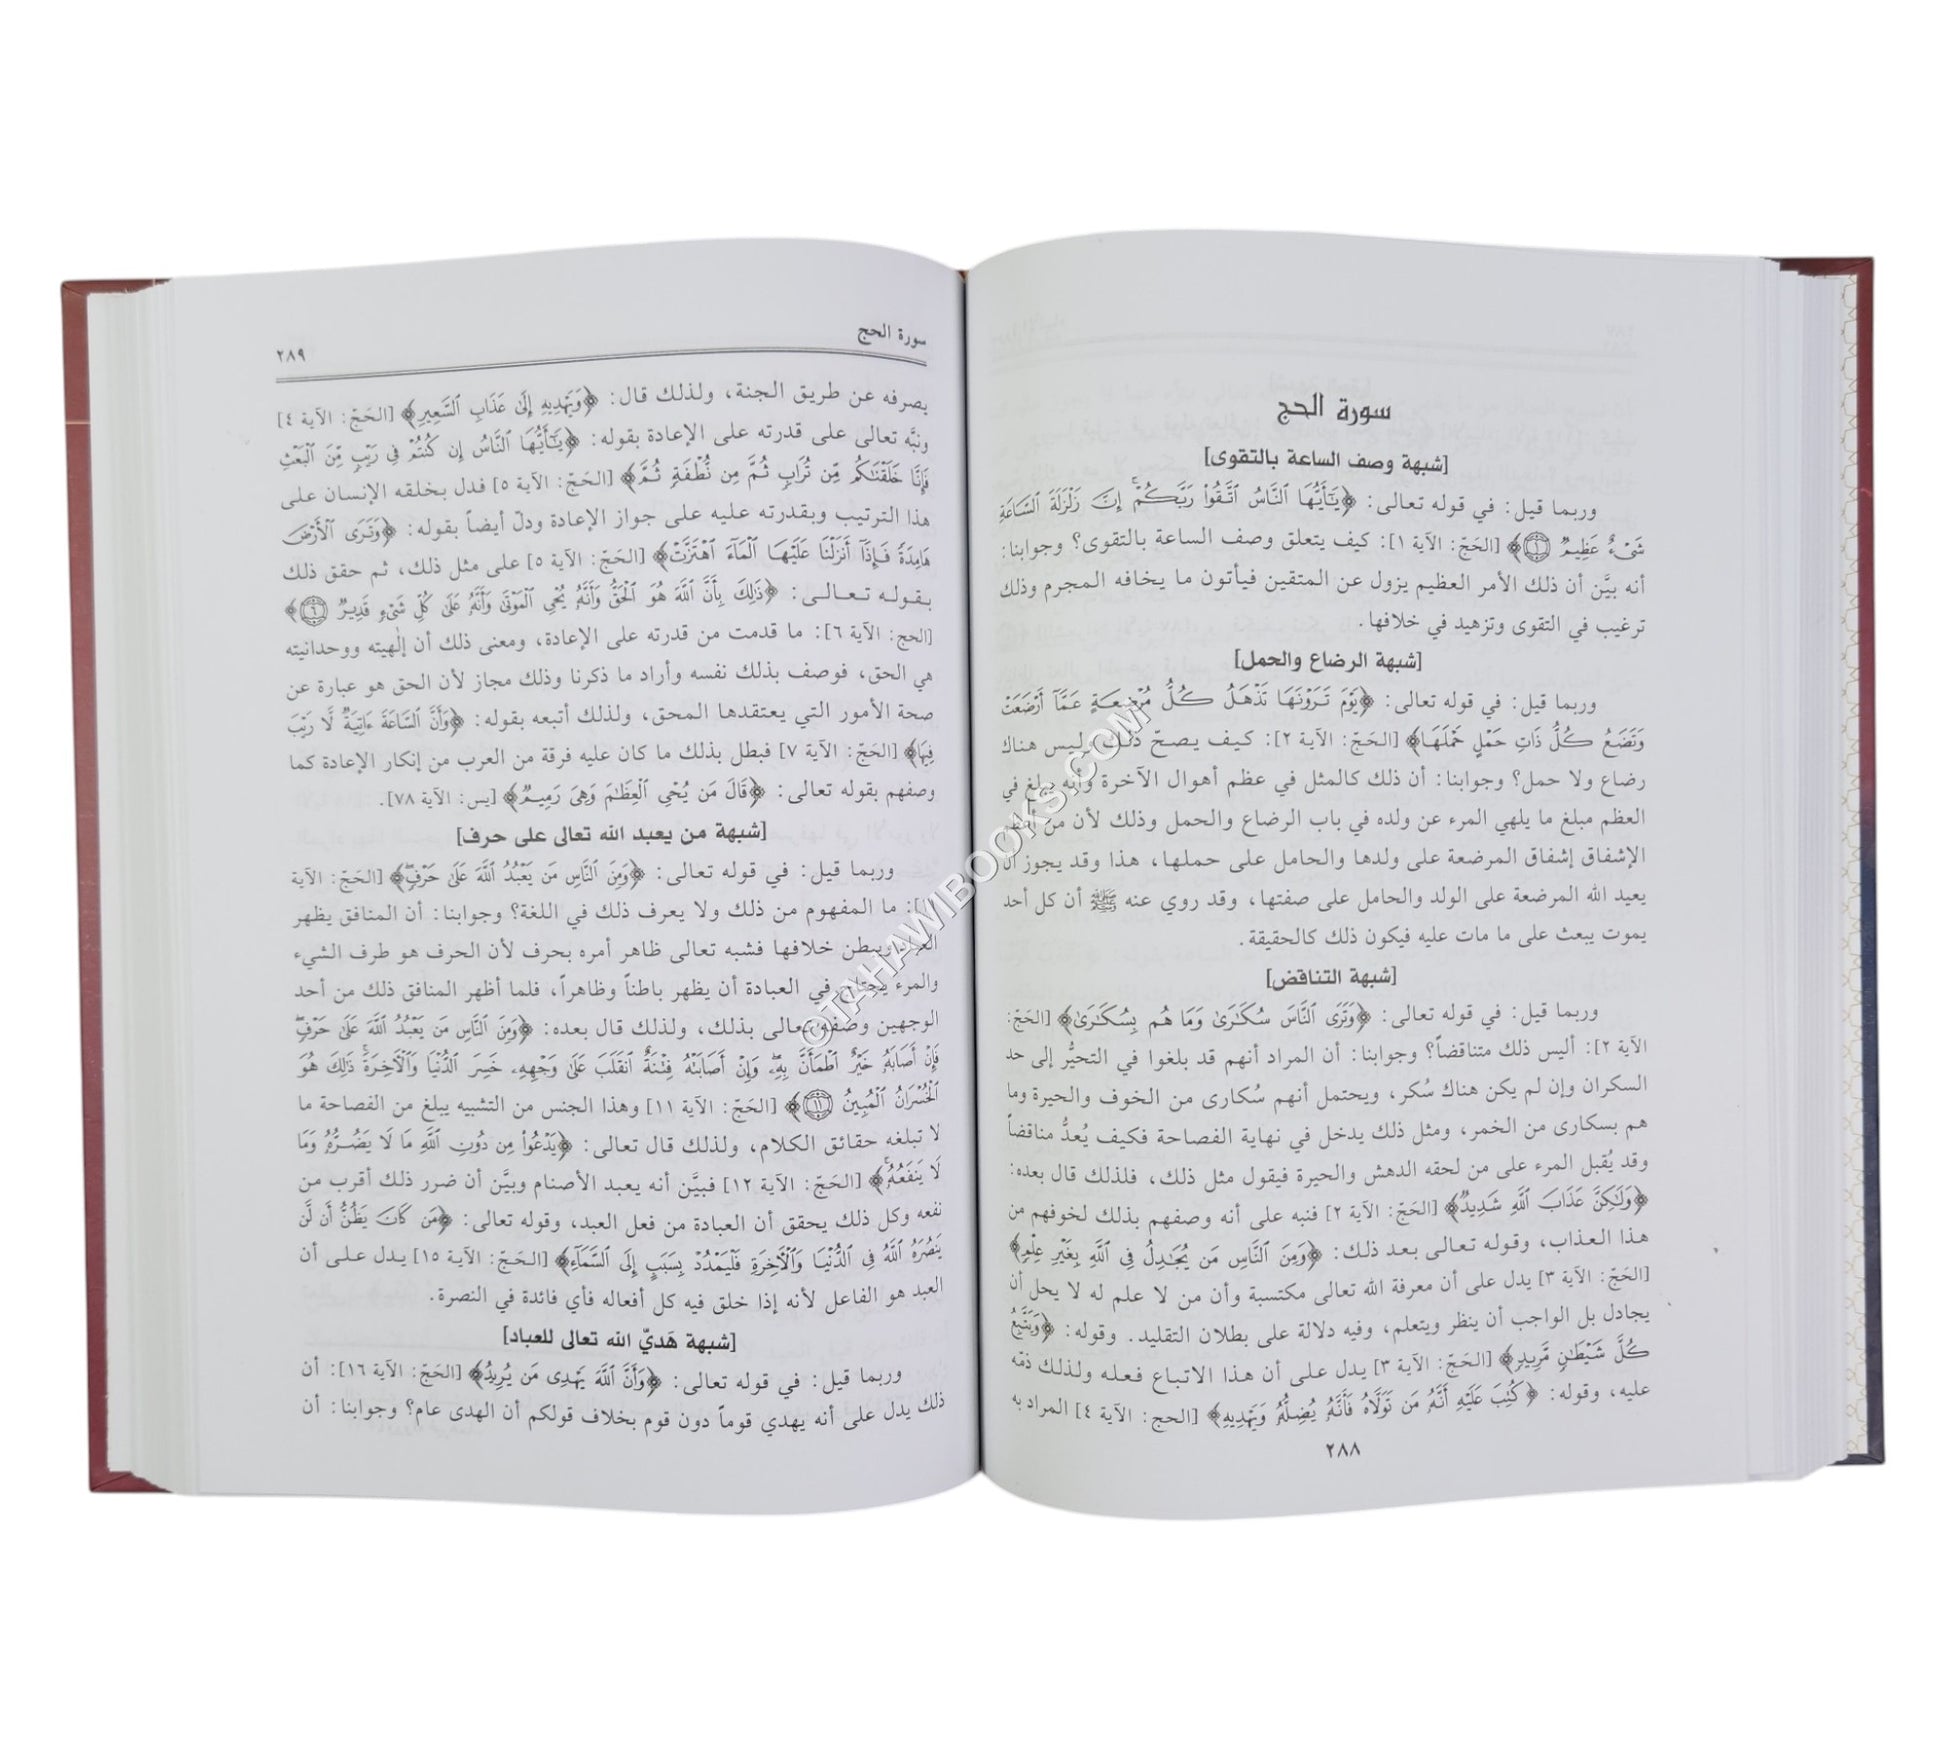 سورة الحج
[شبهة وصف الساعة بالتقوى]
وربما قيل: في قوله تعالى: ﴿يَٰٓأَيُّهَا ٱلنَّاسُ ٱتَّقُوا۟ رَبَّكُمْ ۚ إِنَّ زَلْزَلَةَ ٱلسَّاعَةِ
شَىْءٌ عَظِيمٌ ۝١﴾ [الحَجّ: الآية ١]: كيف يتعلق وصف الساعة بالتقوى؟ وجوابنا:
أنه بيَّن أن ذلك الأمر العظيم يزول عن المتقين فيأتون ما يخافه المجرم وذلك
ترغيب في التقوى وتزهيد في خلافها.
[شبهة الرضاع والحمل]
وربما قيل: في قوله تعالى: ﴿يَوْمَ تَرَوْنَهَا تَذْهَلُ كُلُّ مُرْضِعَةٍ عَمَّآ أَرْضَعَتْ
وَتَضَعُ كُلُّ ذَاتِ حَمْلٍ حَمْلَهَا﴾ [الحَجّ: الآية ٢]: كيف يصحّ ذلك وليس هناك
رضاع ولا حمل؟ وجوابنا: أن ذلك كالمثل في عظم أهوال الآخرة وأنه يبلغ في
العظم مبلغ ما يلهي المرء عن ولده في باب الرضاع والحمل وذلك لأن من أعظم
الإشفاق إشفاق المرضعة على ولدها والحامل على حملها، هذا وقد يجوز أن
يعيد الله المرضعة على الولد والحامل على صفتها، وقد روي عنه ﷺ أن كل أحد
يموت يبعث على ما مات عليه فيكون ذلك كالحقيقة.
[شبهة التناقض]
وربما قيل: في قوله تعالى: ﴿وَتَرَى ٱلنَّاسَ سُكَٰرَىٰ وَمَا هُم بِسُكَٰرَىٰ﴾ [الحَجّ:
الآية ٢]: أليس ذلك متناقضاً؟ وجوابنا: أن المراد أنهم قد بلغوا في التحيُّر إلى حد
السكران وإن لم يكن هناك سُكر، ويحتمل أنهم سُكارى من الخوف والحيرة وما
هم بسكارى من الخمر، ومثل ذلك يدخل في نهاية الفصاحة فكيف يُعدُّ مناقضاً
وقد يُقبل المرء على من لحقه الدهش والحيرة فيقول مثل ذلك، فلذلك قال بعده:
﴿وَلَٰكِنَّ عَذَابَ ٱللَّهِ شَدِيدٌ﴾ [الحَجّ: الآية ٢] فنبه على أنه وصفهم بذلك لخوفهم من
هذا العذاب، وقوله تعالى بعد ذلك: ﴿وَمِنَ ٱلنَّاسِ مَن يُجَٰدِلُ فِى ٱللَّهِ بِغَيْرِ عِلْمٍ﴾
[الحَجّ: الآية ٣] يدل على أن معرفة الله تعالى مكتسبة وأن من لا علم له لا يحل أن
يجادل بل الواجب أن ينظر ويتعلم، وفيه دلالة على بطلان التقليد. وقوله: ﴿وَيَتَّبِعُ
كُلَّ شَيْطَٰنٍ مَّرِيدٍ﴾ [الحَجّ: الآية ٣] يدل على أن هذا الاتباع فعله ولذلك ذمّه
عليه، وقوله: ﴿كُتِبَ عَلَيْهِ أَنَّهُۥ مَن تَوَلَّاهُ فَأَنَّهُۥ يُضِلُّهُۥ وَيَهْدِيهِ﴾ [الحج: الآية ٤] المراد به
٢٨٨
سورة الحج
٢٨٩
يصرفه عن طريق الجنة، ولذلك قال: ﴿وَيَهْدِيهِ إِلَىٰ عَذَابِ ٱلسَّعِيرِ﴾ [الحَجّ: الآية ٤]
ونبَّه تعالى على قدرته على الإعادة بقوله: ﴿يَٰٓأَيُّهَا ٱلنَّاسُ إِن كُنتُمْ فِى رَيْبٍ مِّنَ ٱلْبَعْثِ
فَإِنَّا خَلَقْنَٰكُم مِّن تُرَابٍ ثُمَّ مِن نُّطْفَةٍ ثُمَّ﴾ [الحَجّ: الآية ٥] فدل بخلقه الإنسان على
هذا الترتيب وبقدرته عليه على جواز الإعادة ودلّ أيضاً بقوله: ﴿وَتَرَى ٱلْأَرْضَ
هَامِدَةً فَإِذَآ أَنزَلْنَا عَلَيْهَا ٱلْمَآءَ ٱهْتَزَّتْ﴾ [الحَجّ: الآية ٥] على مثل ذلك، ثم حقق ذلك
بقوله تعالى: ﴿ذَٰلِكَ بِأَنَّ ٱللَّهَ هُوَ ٱلْحَقُّ وَأَنَّهُۥ يُحْىِ ٱلْمَوْتَىٰ وَأَنَّهُۥ عَلَىٰ كُلِّ شَىْءٍ قَدِيرٌ ۝٦﴾
[الحج: الآية ٦]: ما قدمت من قدرته على الإعادة، ومعنى ذلك أن إلٰهيته ووحدانيته
هي الحق، فوصف بذلك نفسه وأراد ما ذكرنا وذلك مجاز لأن الحق هو عبارة عن
صحة الأمور التي يعتقدها المحق، ولذلك أتبعه بقوله: ﴿وَأَنَّ ٱلسَّاعَةَ ءَاتِيَةٌ لَّا رَيْبَ
فِيهَا﴾ [الحَجّ: الآية ٧] فبطل بذلك ما كان عليه فرقة من العرب من إنكار الإعادة كما
وصفهم بقوله تعالى: ﴿قَالَ مَن يُحْىِ ٱلْعِظَٰمَ وَهِىَ رَمِيمٌ﴾ [يس: الآية ٧٨].
[شبهة من يعبد الله تعالى على حرف]
وربما قيل: في قوله تعالى: ﴿وَمِنَ ٱلنَّاسِ مَن يَعْبُدُ ٱللَّهَ عَلَىٰ حَرْفٍ﴾ [الحَجّ: الآية
١١]: ما المفهوم من ذلك ولا يعرف ذلك في اللغة؟ وجوابنا: أن المنافق يظهر
ويبطن خلافها فشبه تعالى ظاهر أمره بحرف لأن الحرف هو طرف الشيء
والمرء يحتاج في العبادة أن يظهر باطناً وظاهراً، فلما أظهر المنافق ذلك من أحد
الوجهين وصفه تعالى بذلك، ولذلك قال بعده: ﴿وَمِنَ ٱلنَّاسِ مَن يَعْبُدُ ٱللَّهَ عَلَىٰ حَرْفٍ ۖ
فَإِنْ أَصَابَهُۥ خَيْرٌ ٱطْمَأَنَّ بِهِۦ ۖ وَإِنْ أَصَابَتْهُ فِتْنَةٌ ٱنقَلَبَ عَلَىٰ وَجْهِهِۦ خَسِرَ ٱلدُّنْيَا وَٱلْءَاخِرَةَ ۚ ذَٰلِكَ هُوَ
ٱلْخُسْرَانُ ٱلْمُبِينُ ۝١١﴾ [الحَجّ: الآية ١١] وهذا الجنس من التشبيه يبلغ من الفصاحة ما
لا تبلغه حقائق الكلام، ولذلك قال تعالى: ﴿يَدْعُوا۟ مِن دُونِ ٱللَّهِ مَا لَا يَضُرُّهُۥ وَمَا
لَا يَنفَعُهُۥ ۚ﴾ [الحَجّ: الآية ١٢] فبيَّن أنه يعبد الأصنام وبيَّن أن ضرر ذلك أقرب من
نفعه وكل ذلك يحقق أن العبادة من فعل العبد، وقوله تعالى: ﴿مَن كَانَ يَظُنُّ أَن لَّن
يَنصُرَهُ ٱللَّهُ فِى ٱلدُّنْيَا وَٱلْءَاخِرَةِ فَلْيَمْدُدْ بِسَبَبٍ إِلَى ٱلسَّمَآءِ﴾ [الحَجّ: الآية ١٥] يدل على أن
العبد هو الفاعل لأنه إذا خلق فيه كل أفعاله فأي فائدة في النصرة.
[شبهة هَديّ الله تعالى للعباد]
وربما قيل: في قوله تعالى: ﴿وَأَنَّ ٱللَّهَ يَهْدِى مَن يُرِيدُ﴾ [الحَجّ: الآية ١٦]: أن
ذلك يدل على أنه يهدي قوماً دون قوم بخلاف قولكم أن الهدى عام؟ وجوابنا: أن
©TAHAWIBOOKS.COM